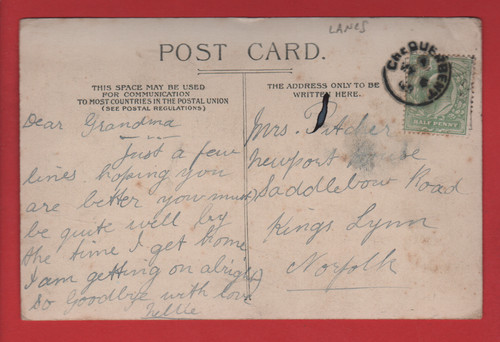 LANCS
POST CARD.
THIS SPACE MAY BE USED
FOR COMMUNICATION
TO MOST COUNTRIES IN THE POSTAL UNION
(SEE POSTAL REGULATIONS.)
Dear Grandma
Just a few
lines hoping you
are better you must
be quite well by
the time I get home
I am getting on alright
So Goodbye with love
Nellie
THE ADDRESS ONLY TO BE
WRITTEN HERE.
Mrs. Pitcher
Newport House
Saddlebow Road
Kings Lynn
Norfolk
CHEQUERBENT
HALF PENNY